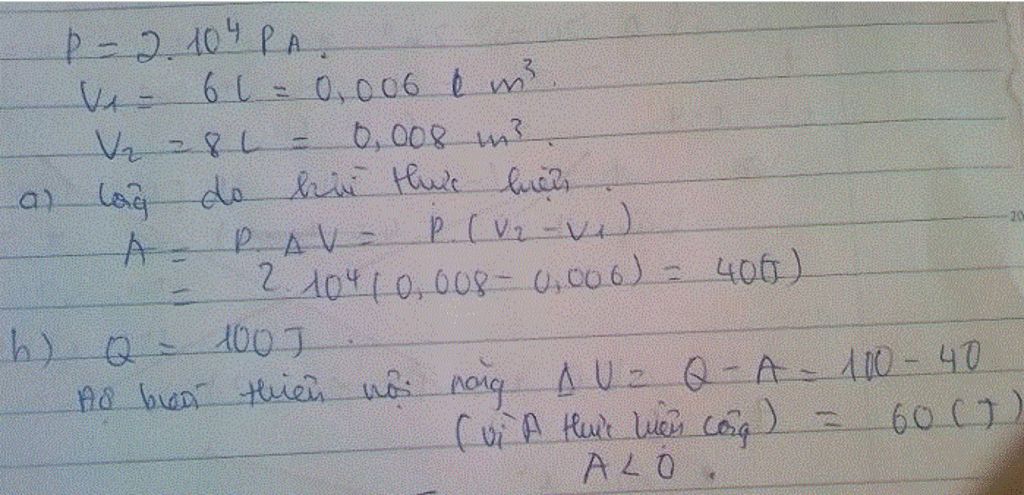 P = 2.10⁴ PA.
V₁ = 6 L = 0,006 m³.
V₂ = 8 L = 0,008 m³.
a) Công do khí thực hiện.
A = P. ΔV = P.(V₂ - V₁)
= 2.10⁴(0,008 - 0,006) = 40(J)
b) Q = 100J.
Độ biến thiên nội năng ΔU = Q - A = 100 - 40
(vì A thực hiện công) = 60 (J)
A < 0.
20